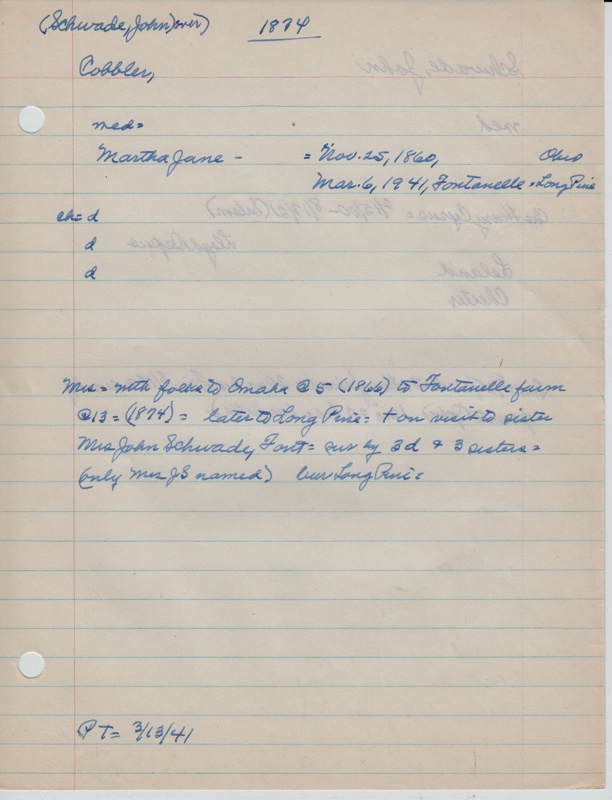 (Schwade, John) over) 1874
Cobbler,
med=
Martha Jane - = Nov. 25, 1860, Ohio
Mar. 6, 1941, Fontanelle = Long Pine
ch= d
d
d
Mrs = with folks to Omaha @ 5 (1866) to Fontanelle farm
@ 13 = (1874) = later to Long Pine = + on visit to sister
Mrs John Schwade, Font = sur by 3 d & 3 sisters =
(only Mrs JS named) bur Long Pine =
PT= 3/13/41
Schwade, John
med
Leland
Chester